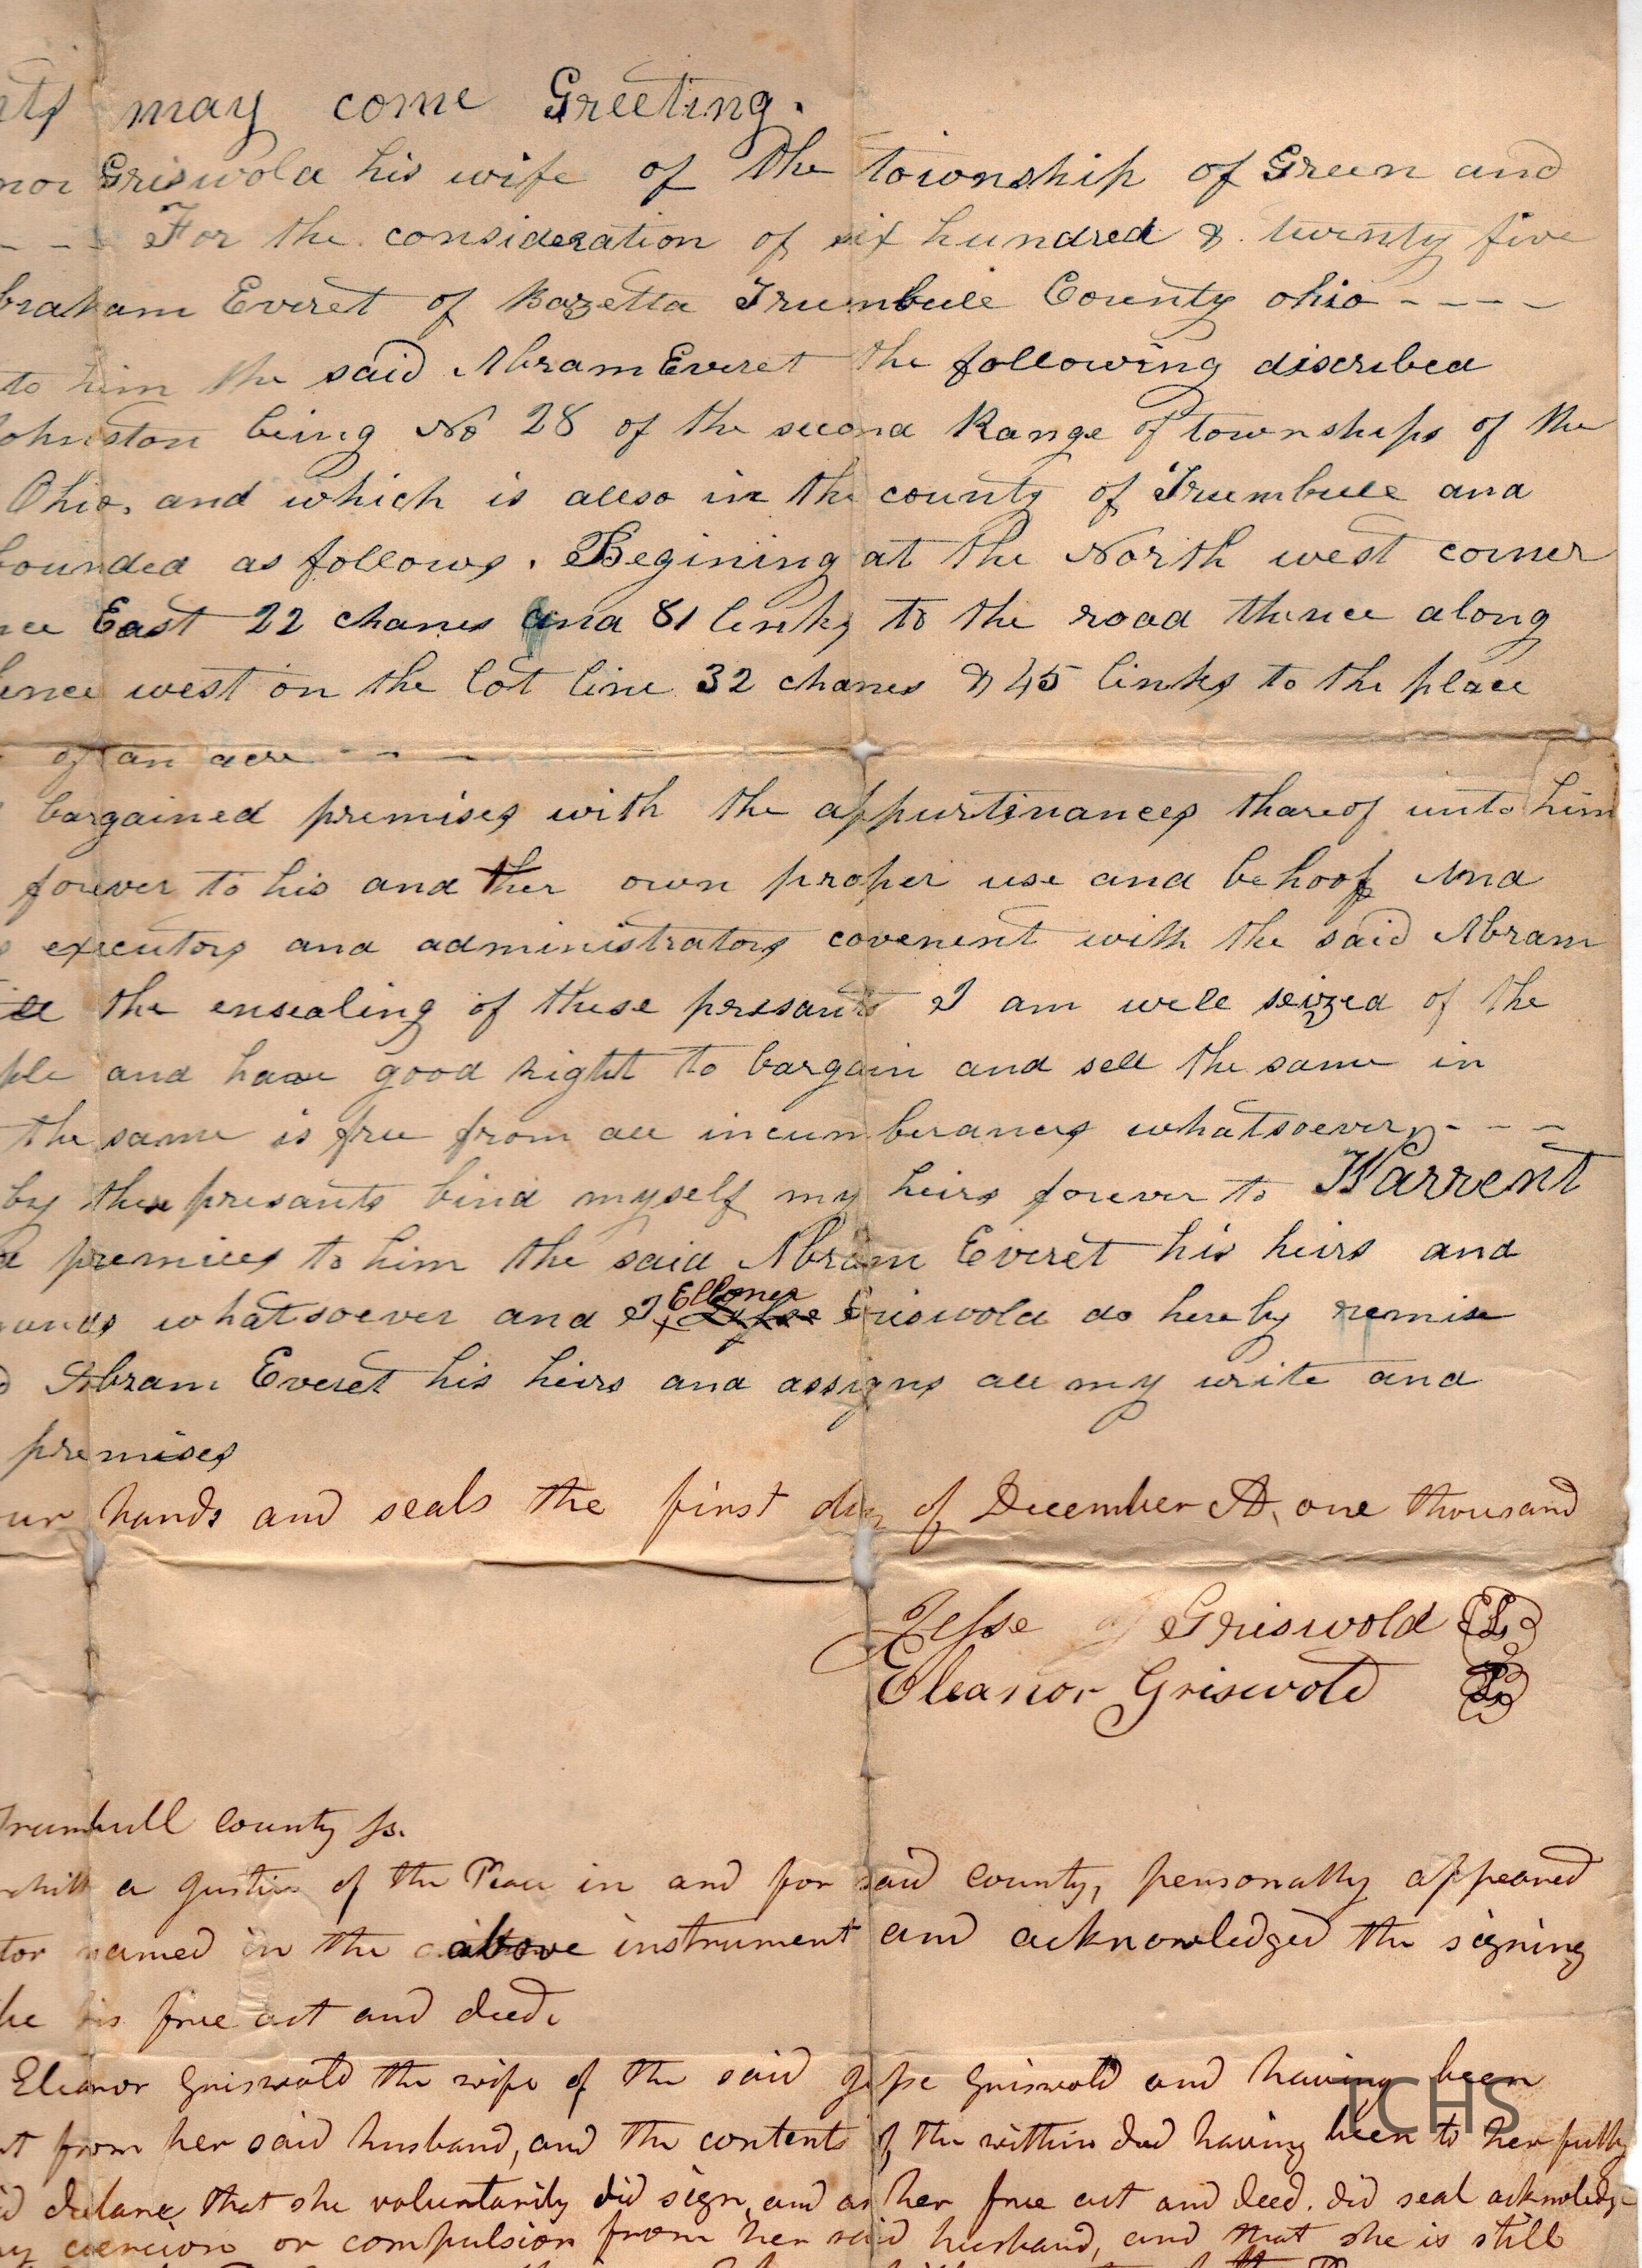 nts may come Greeting.
nor Griswold his wife of the township of Green and
- - - For the consideration of six hundred & twenty five
braham Everet of Bazetta Trumbull County ohio - - - -
to him the said Abram Everet the following discribed
Johnston being No 28 of the second Range of townships of the
Ohio, and which is allso in the county of Trumbull and
bounded as follows. Begining at the North west corner
nce East 22 chanes and 81 links to the road thence along
hence west on the lot line 32 chanes & 45 links to the place
of an acre - - -
bargained premises with the appurtinances thareof unto him
forever to his and ther own proper use and behoof And
s executors and administrators covenent with the said Abram
the ensealing of these presants I am well seized of the
ple and have good right to bargain and sell the same in
the same is free from all incumberances whatsoever - - -
by these presants bind myself my heirs forever to Warrent
d premices to him the said Abram Everet his heirs and
ands whatsoever and I Elloner Jesse Griswold do hereby remise
d Abram Everet his heirs and assigns all my write and
premises
ur hands and seals the first day of December AD, one thousand
Jesse Griswold LS
Eleanor Griswold LS
Trumbull County ss.
a Justice of the Peace in and for said county, personally appeared
tor named in the above instrument and acknowledged the signing
be his free act and deed.
Eleanor Griswold the wife of the said Jesse Griswold and having been
t from her said husband, and the contents of the within deed having been to her fully
d declare, that she voluntarily did sign, and as her free act and deed. did seal acknowledge
ny coercion or compulsion from her said husband, and that she is still
TCHS